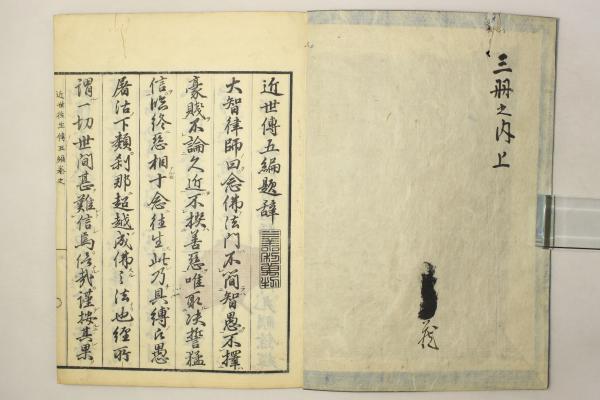 三冊之内上
蔵
近世傳五編題辞
大智律師曰念佛法門不簡智愚不擇
豪賤不論久近不撰善惡唯取决誓猛
信臨終惡相十念往生此乃具縛凡愚
屠沽下類刹那超越成佛之法也經所
謂一切世間甚難信焉信哉謹按其果
近世往生傳五編卷之